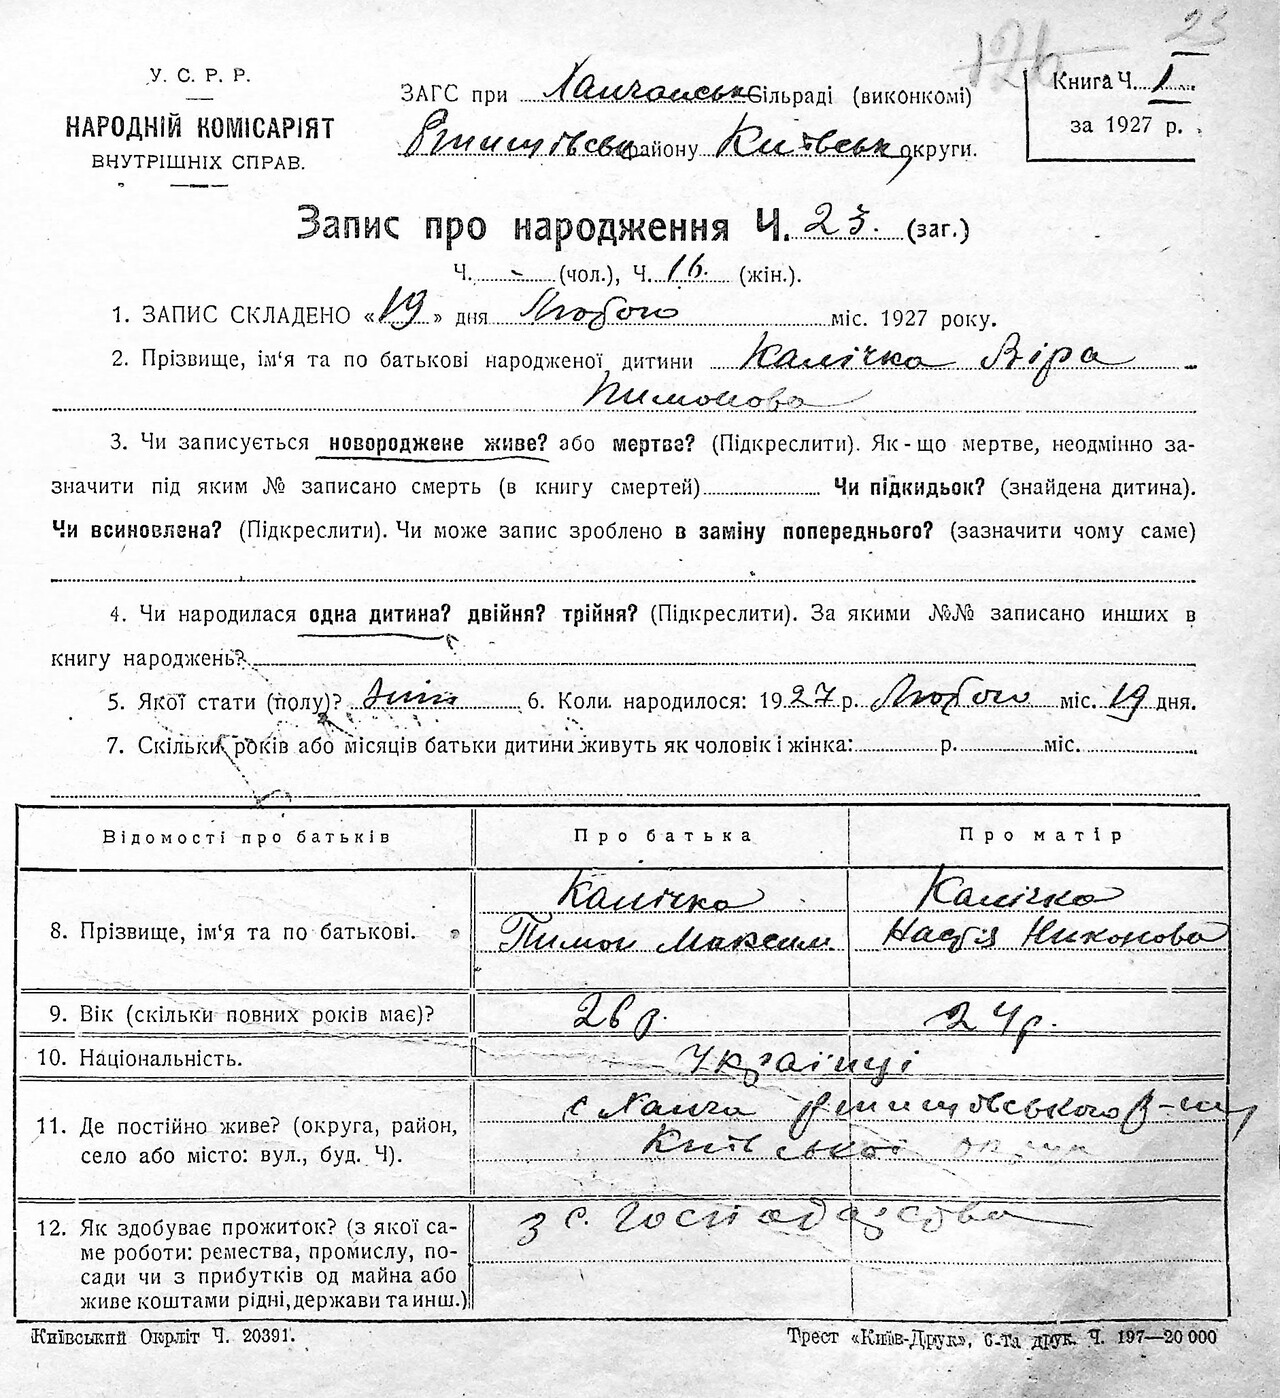 23
126
У. С. Р. Р.
НАРОДНІЙ КОМІСАРІЯТ
ВНУТРІШНІХ СПРАВ.
ЗАГС при Ханчанськ Сільраді (виконкомі)
Ржищівськ району Київськ округи.
Книга Ч. I
за 1927 р.
Запис про народження Ч. 23. (заг.)
Ч. - (чол.), Ч. 16. (жін.).
1. ЗАПИС СКЛАДЕНО «19» дня Лютого міс. 1927 року.
2. Прізвище, ім‘я та по батькові народженої дитини Калічка Віра
Тимонова
3. Чи записується новороджене живе? або мертве? (Підкреслити). Як-що мертве, неодмінно за-
значити під яким № записано смерть (в книгу смертей) Чи підкидьок? (знайдена дитина).
Чи всиновлена? (Підкреслити). Чи може запис зроблено в заміну попереднього? (зазначити чому саме)
4. Чи народилася одна дитина? двійня? трійня? (Підкреслити). За якими №№ записано инших в
книгу народжень?
5. Якої стати (полу)? 6. Коли народилося: 1927 р. Лютого міс. 19 дня.
7. Скільки років або місяців батьки дитини живуть як чоловік і жінка: р. міс.
Відомості про батьків Про батька Про матір
8. Прізвище, ім‘я та по батькові. Калічка Тимон Максим. Калічка Настя Никонова
9. Вік (скільки повних років має)? 26 р. 24 р.
10. Національність. Українці
11. Де постійно живе? (округа, район,
село або місто: вул., буд. Ч).
с Ханча Ржищівського р-ну
Київської округи
12. Як здобуває прожиток? (з якої са-
ме роботи: ремества, промислу, по-
сади чи з прибутків од майна або
живе коштами рідні, держави та инш.)
з с. господарства
Київський Окрліт Ч. 20391.
Трест «Київ-Друк», 6-та друк. Ч. 197—20 000